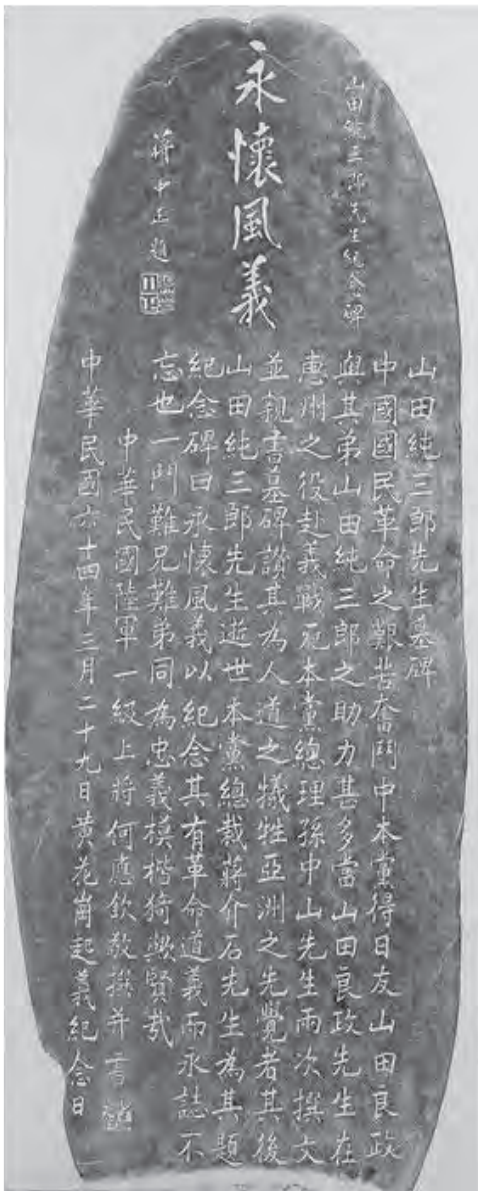 山田純三郎先生紀念碑
永懷風義
蔣中正題
山田純三郎先生墓碑
中國國民革命之艱苦奮鬥中本黨得日友山田良政
與其弟山田純三郎之助力甚多當山田良政先生在
惠州之役赴義戰死本黨總理孫中山先生兩次撰文
並親書墓碑讚其為人道之犧牲亞洲之先覺者其後
山田純三郎先生逝世本黨總裁蔣介石先生為其題
紀念碑曰永懷風義以紀念其有革命道義而永誌不
忘也一門難兄難弟同為忠義模楷猗歟賢哉
中華民國陸軍一級上將何應欽敬撰并書
中華民國六十四年三月二十九日黃花崗起義紀念日